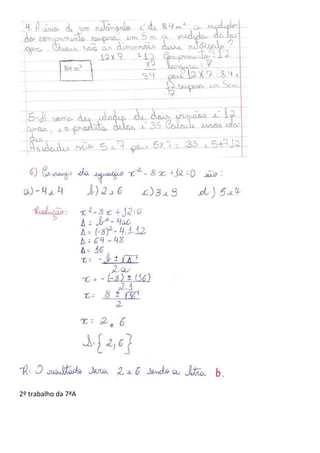 4. A área de um retângulo é de 84 m², a medida
do comprimento supera em 5 m a medida da lar-
gura. Quais são as dimensões desse retângulo?
12 x 7 : 12 Comprimento = 12
84 m²
x 7
largura = 7
84 pois 12 x 7 = 84 e
12 supera em 5 cm
5. A soma das idades de dois irmãos é 12
anos, e o produto delas é 35. Calcule essas ida-
des.
As idades são 5 e 7 pois 5x7 = 35 e 5+7=12
6) As raízes da equação x² - 8x + 12 = 0 são:
a) -4 e 4 b) 2 e 6 c) 3 e 9 d) 5 e 7
Resolução: x² - 8x + 12 = 0
Δ = b² - 4ac
Δ = (-8)² - 4.1.12
Δ = 64 - 48
Δ = 16
x = - b ± √Δ
2.a
x = - (-8) ± (16)
2.1
x = 8 ± √16
2
x = 2 e 6
S={2,6}
R: O resultado será 2 e 6 sendo a letra b.
2º trabalho da 7ªA